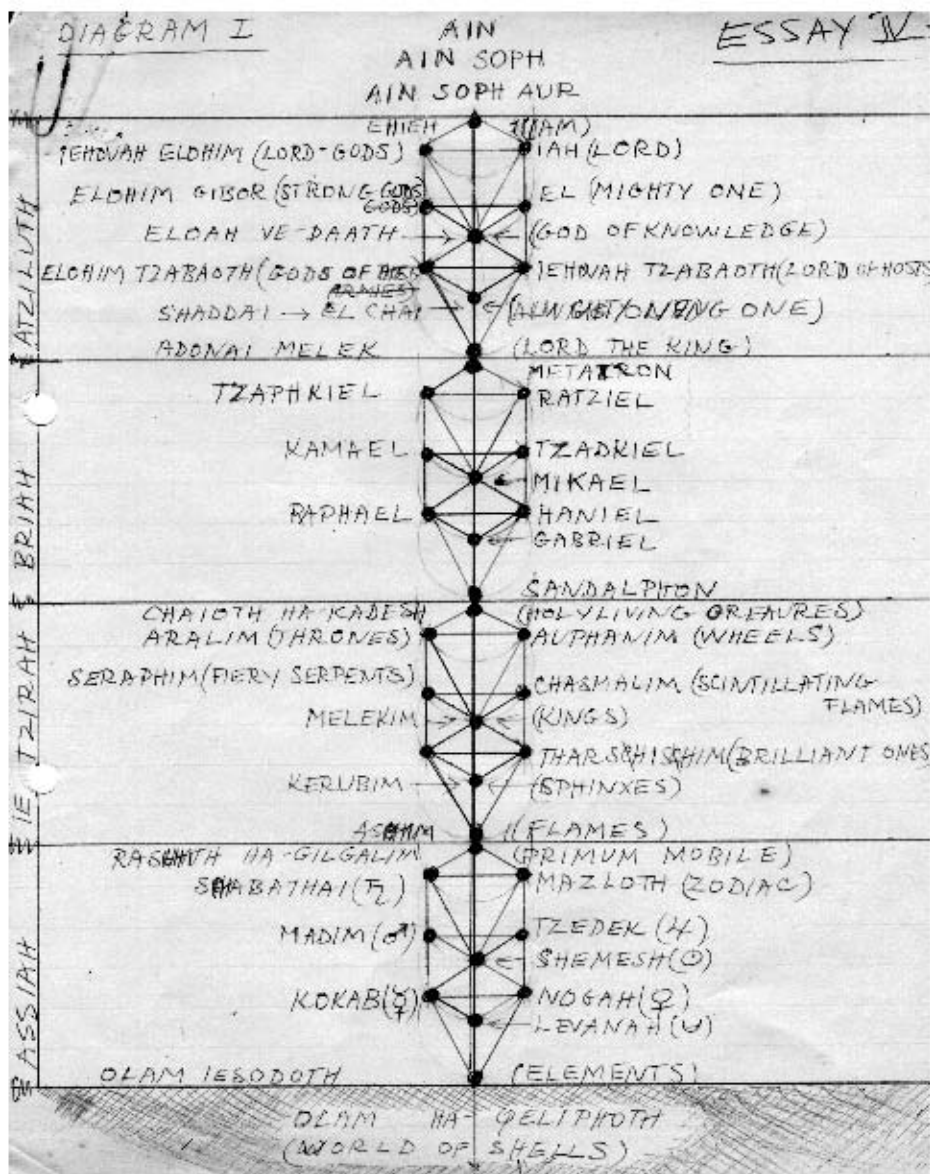 DIAGRAM I
ESSAY IV
AIN
AIN SOPH
AIN SOPH AUR
ATZILUTH
EHIEH (I AM)
IEHOVAH ELOHIM (LORD-GODS) IAH (LORD)
ELOHIM GIBOR (STRONG GODS) EL (MIGHTY ONE)
ELOAH VE-DAATH (GOD OF KNOWLEDGE)
ELOHIM TZABAOTH (GODS OF IEHOVAH TZABAOTH (LORD OF HOSTS)
ARMIES)
SHADDAI → EL CHAI
ADONAI MELEK (LORD THE KING)
BRIAH
METATRON
TZAPHKIEL RATZIEL
KAMAEL TZADKIEL
MIKAEL
RAPHAEL HANIEL
GABRIEL
SANDALPHON
IETZIRAH
CHAIOTH HA-KADESH (HOLY LIVING CREAURES)
ARALIM (THRONES) AUPHANIM (WHEELS)
SERAPHIM (FIERY SERPENTS) CHASMALIM (SCINTILLATING
FLAMES)
MELEKIM (KINGS)
THARSCHISCHIM (BRILLIANT ONES)
KERUBIM (SPHINXES)
(FLAMES)
ASSIAH
HA-GILGALIM (PRIMUM MOBILE)
SHABATHAI (♄) MAZLOTH (ZODIAC)
MADIM (♂) TZEDEK (♃)
SHEMESH (☉)
KOKAB (☿) NOGAH (♀)
LEVANAH (☽)
OLAM IESODOTH (ELEMENTS)
OLAM HA-QELIPHOTH
(WORLD OF SHELLS)